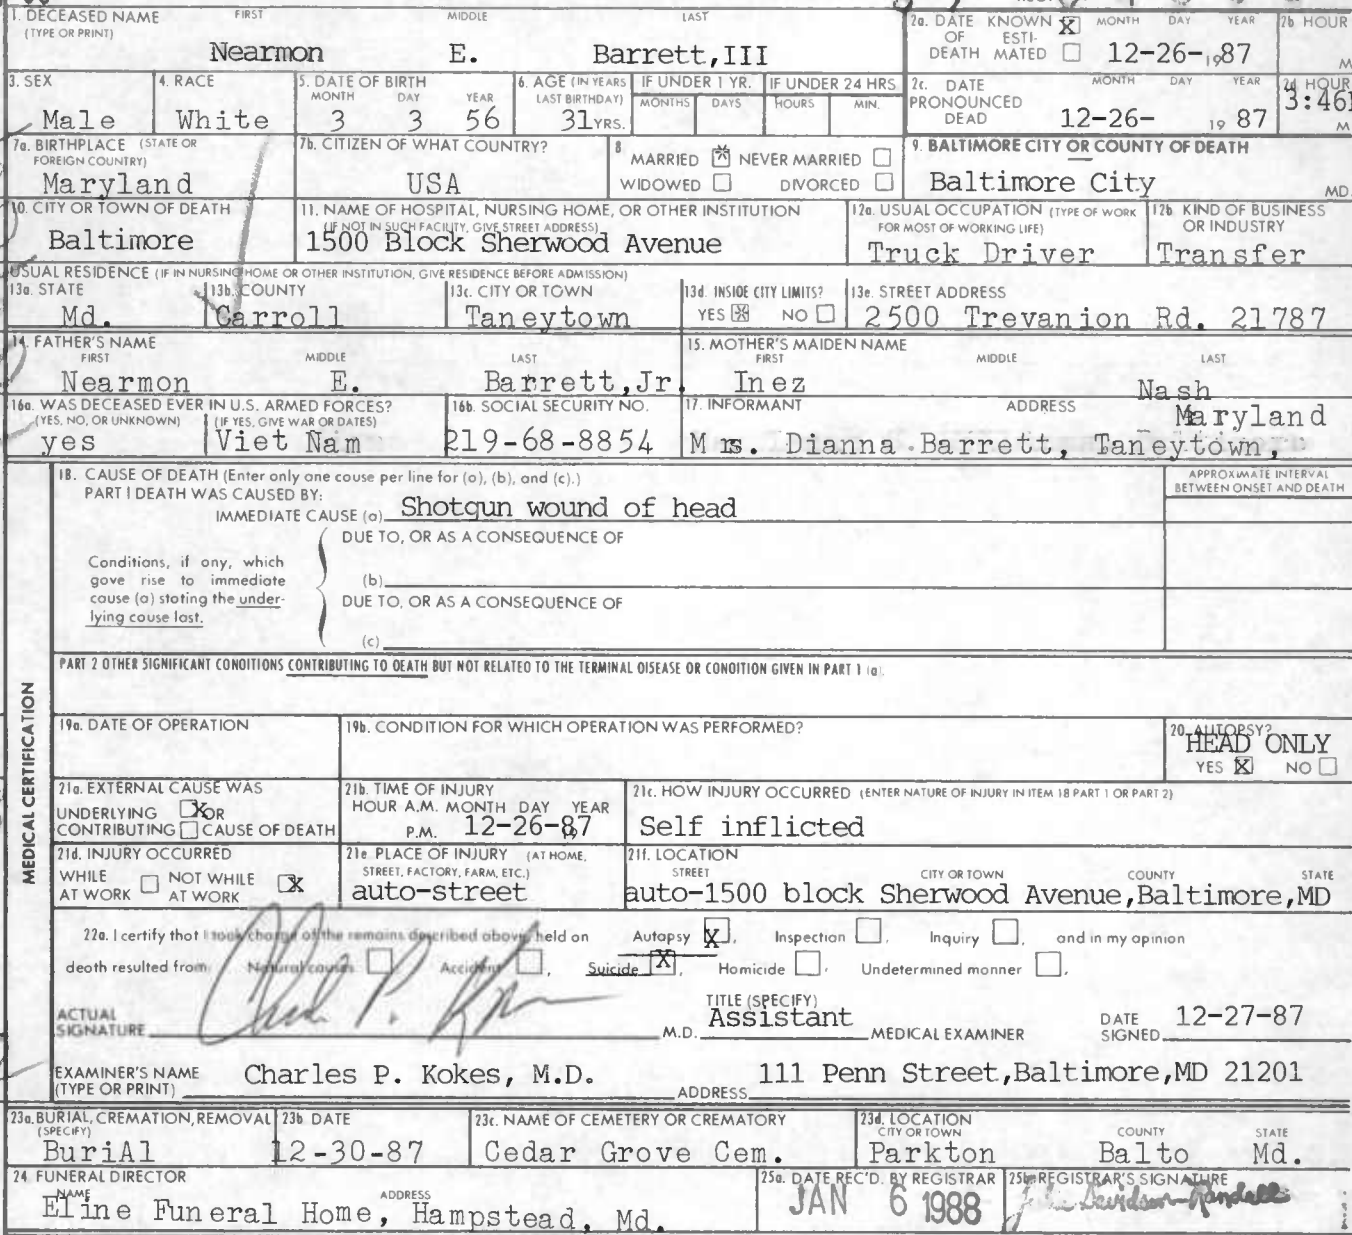 1. DECEASED NAME FIRST MIDDLE LAST
(TYPE OR PRINT)
Nearmon E. Barrett,III
2a. DATE KNOWN X MONTH DAY YEAR
OF ESTI-
DEATH MATED 12-26-1987
2b HOUR
M
3. SEX
Male
4. RACE
White
5. DATE OF BIRTH
MONTH DAY YEAR
3 3 56
6. AGE (IN YEARS
LAST BIRTHDAY)
31YRS.
IF UNDER 1 YR.
MONTHS DAYS
IF UNDER 24 HRS
HOURS MIN.
2c. DATE MONTH DAY YEAR
PRONOUNCED
DEAD 12-26- 19 87
2d HOUR
3:46
M
7a. BIRTHPLACE (STATE OR
FOREIGN COUNTRY)
Maryland
7b. CITIZEN OF WHAT COUNTRY?
USA
8
MARRIED X NEVER MARRIED
WIDOWED DIVORCED
9. BALTIMORE CITY OR COUNTY OF DEATH
Baltimore City MD.
10. CITY OR TOWN OF DEATH
Baltimore
11. NAME OF HOSPITAL, NURSING HOME, OR OTHER INSTITUTION
(IF NOT IN SUCH FACILITY, GIVE STREET ADDRESS)
1500 Block Sherwood Avenue
12a. USUAL OCCUPATION (TYPE OF WORK
FOR MOST OF WORKING LIFE)
Truck Driver
12b KIND OF BUSINESS
OR INDUSTRY
Transfer
USUAL RESIDENCE (IF IN NURSING HOME OR OTHER INSTITUTION, GIVE RESIDENCE BEFORE ADMISSION)
13a. STATE
Md.
13b. COUNTY
Carroll
13c. CITY OR TOWN
Taneytown
13d. INSIDE CITY LIMITS?
YES X NO
13e. STREET ADDRESS
2500 Trevanion Rd. 21787
14. FATHER'S NAME
FIRST MIDDLE LAST
Nearmon E. Barrett,Jr.
15. MOTHER'S MAIDEN NAME
FIRST MIDDLE LAST
Inez Nash
16a. WAS DECEASED EVER IN U.S. ARMED FORCES?
(YES, NO, OR UNKNOWN) (IF YES, GIVE WAR OR DATES)
yes Viet Nam
16b. SOCIAL SECURITY NO.
219-68-8854
17. INFORMANT ADDRESS
Maryland
Mrs. Dianna Barrett, Taneytown,
MEDICAL CERTIFICATION
18. CAUSE OF DEATH (Enter only one cause per line for (a), (b), and (c).)
PART I DEATH WAS CAUSED BY:
IMMEDIATE CAUSE (a) Shotgun wound of head
APPROXIMATE INTERVAL
BETWEEN ONSET AND DEATH
DUE TO, OR AS A CONSEQUENCE OF
Conditions, if any, which
gave rise to immediate
cause (a) stating the under-
lying cause last.
(b)
DUE TO, OR AS A CONSEQUENCE OF
(c)
PART 2 OTHER SIGNIFICANT CONDITIONS CONTRIBUTING TO DEATH BUT NOT RELATED TO THE TERMINAL DISEASE OR CONDITION GIVEN IN PART 1 (a).
19a. DATE OF OPERATION
19b. CONDITION FOR WHICH OPERATION WAS PERFORMED?
20. AUTOPSY?
HEAD ONLY
YES X NO
21a. EXTERNAL CAUSE WAS
UNDERLYING X OR
CONTRIBUTING CAUSE OF DEATH
21b. TIME OF INJURY
HOUR A.M. MONTH DAY YEAR
P.M. 12-26-87
21c. HOW INJURY OCCURRED (ENTER NATURE OF INJURY IN ITEM 18 PART 1 OR PART 2)
Self inflicted
21d. INJURY OCCURRED
WHILE NOT WHILE
AT WORK AT WORK X
21e PLACE OF INJURY (AT HOME,
STREET, FACTORY, FARM, ETC.)
auto-street
21f. LOCATION
STREET CITY OR TOWN COUNTY STATE
auto-1500 block Sherwood Avenue,Baltimore,MD
22a. I certify that I took charge of the remains described above, held on Autopsy X, Inspection , Inquiry , and in my opinion
death resulted from Natural causes , Accident , Suicide X, Homicide , Undetermined manner .
ACTUAL
SIGNATURE Charles P. Kokes M.D.
TITLE (SPECIFY)
Assistant MEDICAL EXAMINER
DATE
SIGNED 12-27-87
EXAMINER'S NAME
(TYPE OR PRINT) Charles P. Kokes, M.D.
ADDRESS 111 Penn Street,Baltimore,MD 21201
23a. BURIAL, CREMATION, REMOVAL
(SPECIFY)
BuriAl
23b DATE
12-30-87
23c. NAME OF CEMETERY OR CREMATORY
Cedar Grove Cem.
23d. LOCATION
CITY OR TOWN COUNTY STATE
Parkton Balto Md.
24 FUNERAL DIRECTOR
NAME ADDRESS
Eline Funeral Home, Hampstead, Md.
25a. DATE REC'D. BY REGISTRAR
JAN 6 1988
25b. REGISTRAR'S SIGNATURE
Julia Davidson-Randall